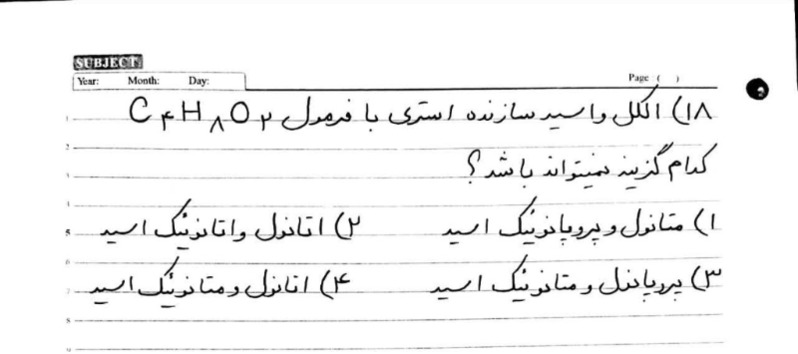 SUBJECT:
Year: Month: Day: Page: ( )
۱۸) الکل و اسید سازنده استری با فرمول C۴H۸O۲
کدام گزینه نمیتواند باشد؟
۱) متانول و پروپانوئیک اسید ۲) اتانول و اتانوئیک اسید
۳) پروپانول و متانوئیک اسید ۴) اتانول و متانوئیک اسید